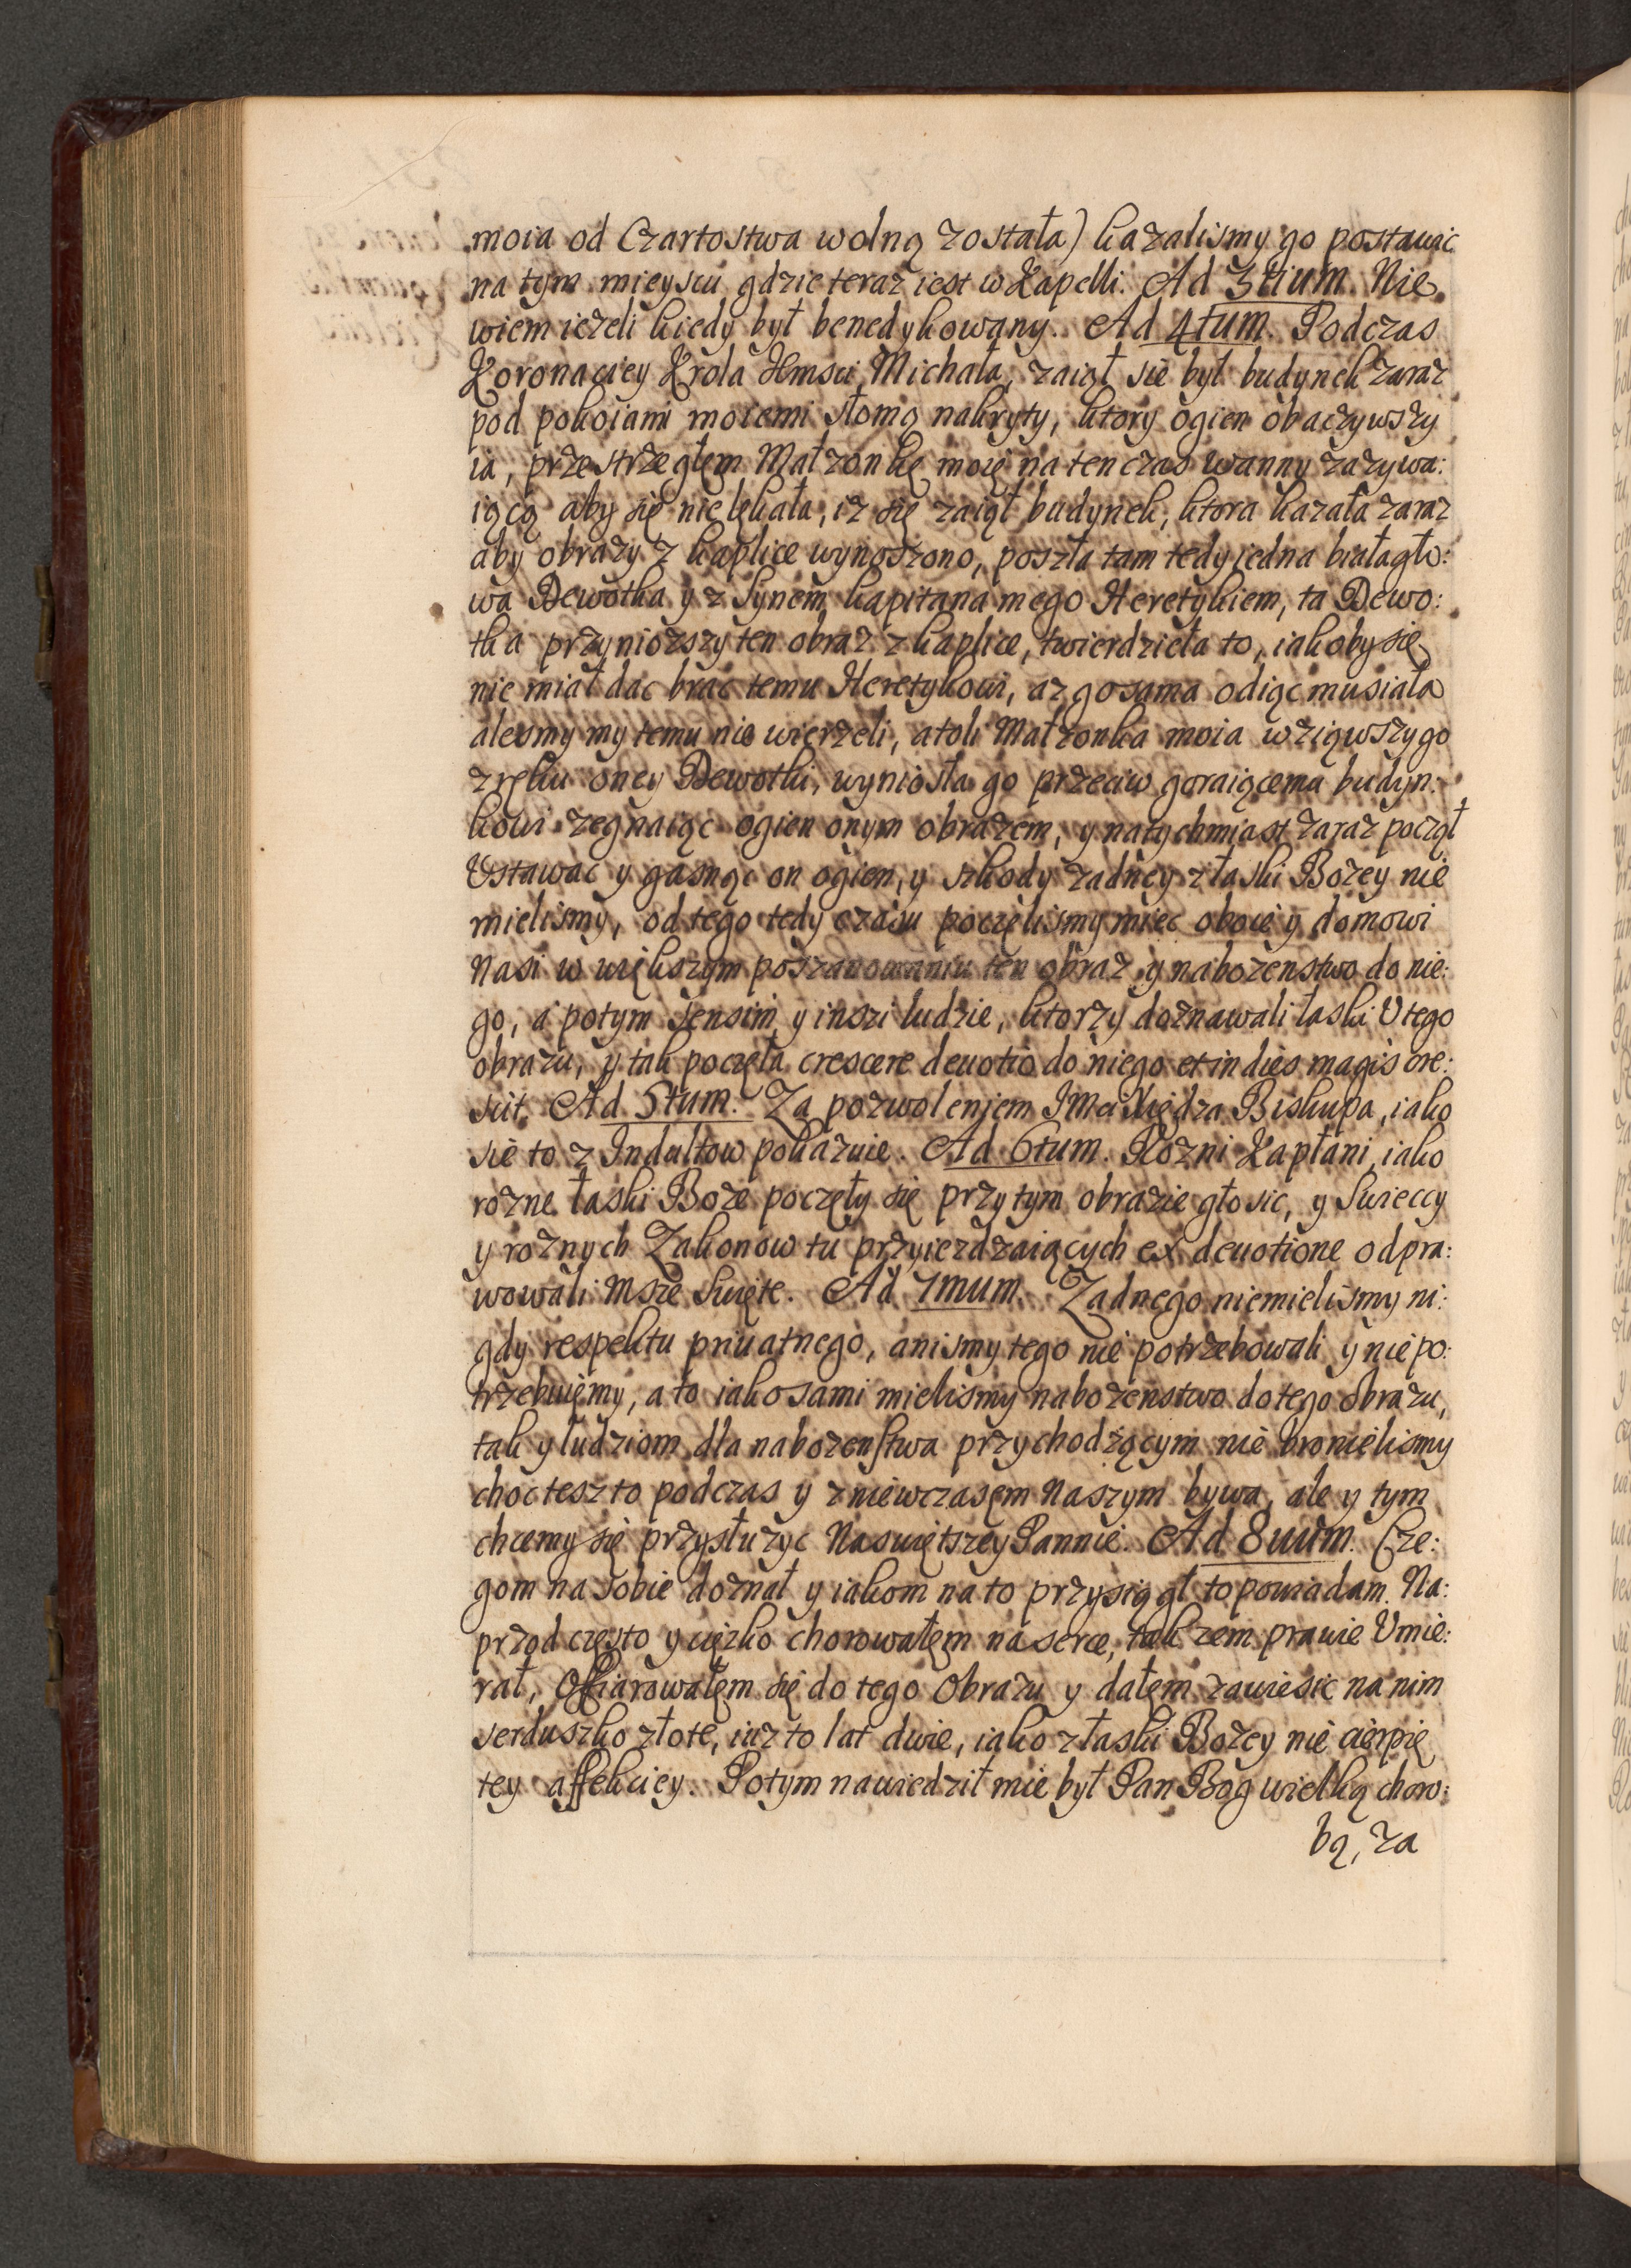 moia od Czartostwa wolną została) kazalismy go postawic
na tym mieyscu gdzie teraz iest w Kapelli. Ad 3tium. Nie
wiem iezeli kiedy był benedykowany. Ad 4tum. Podczas
Koronaciey Krola Jmsci Michała, zaiął sie był budynek zaraz
pod pokoiami moiemi słomą nakryty, ktory ogien obaczywszy
ia, przestrzegłem Małzonkę moię na ten czas wanny zazywa:
iącą aby się nie lękała, iz się zaiął budynek, ktora kazała zaraz
aby obrazy z kaplice wynoszono, poszła tam tedy iedna białagło:
wa Dewotka y z Synem kapitana mego Heretykiem, ta Dewo:
tka przyniozszy ten obraz z kaplice, twierdzieła to, iakoby się
nie miał dac brac temu Heretykowi, az go sama odiąc musiała
alesmy my temu nie wierzeli, atoli Małzonka moia wziąwszy go
z ręku oney Dewotki, wyniosła go przeciw goraiącemu budyn:
kowi zegnaiąc ogien onym obrazem, y natychmiast zaraz począł
Ustawac y gasnąc on ogien, y szkody zadney z łaski Bozey nie
mielismy, od tego tedy czasu poczęlismy miec oboie y domowi
Nasi w większym poszanowaniu ten obraz y nabozenstwo do nie:
go, a potym sensim y inszi ludzie, ktorzy doznawali łaski U tego
obrazu, y tak poczęła crescere deuotio do niego et in dies magis cre:
scit. Ad 5tum. Za pozwolenjem JMci Xiędza Biskupa, iako
sie to z Indultow pokazuie. Ad 6tum. Rozni Kapłani, iako
rozne łaski Boze poczęły się przy tym obrazie głosic, y Swieccy
y roznych Zakonow tu przyiezdzaiących ex deuotione odpra:
wowali Msze Swięte. Ad 7mum. Zadnego niemielismy ni:
gdy respektu priuatnego, anismy tego nie potrzebowali y nie po:
trzebuięmy, a to iako sami mielismy nabozenstwo do tego obrazu,
tak y ludziom dla nabozenstwa przychodzącym nie bronielismy
choc tesz to podczas y z niewczasęm Naszym bywa, ale y tym
chcemy się przysłuzyc Naswiętszey Pannie. Ad 8uum. Cze:
gom na sobie doznał y iakom na to przysiągł to powiadam. Na:
przod często y cięzko chorowałęm na serce, tak zem prawie Umie:
rał, Offiarowałęm się do tego Obrazu y dałęm zawiesic na nim
serduszko złote, iuz to lat dwie, iako z łaski Bozey nie cierpię
tey affekciey. Potym nawiedził mie był Pan Bog wielką choro:
bą, za